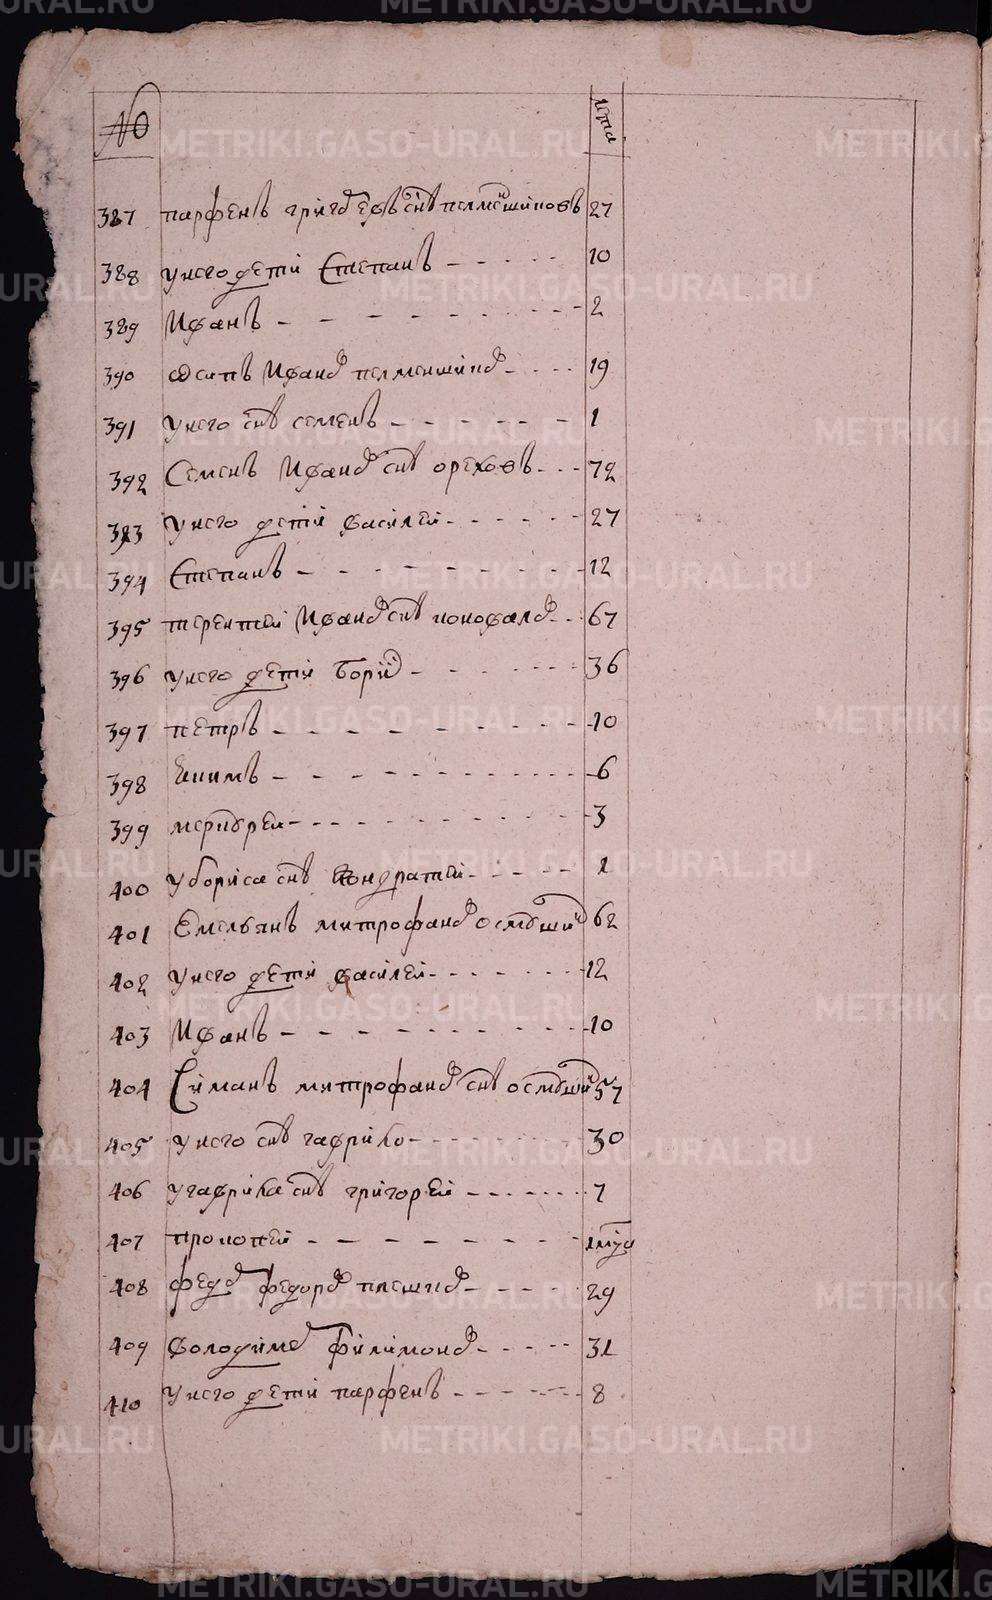 № лѣта
387 парфенъ григоревъ снъ пелменшиковъ 27
388 у него дети Степанъ 10
389 Иванъ 2
390 осипъ Иванов пелменшиков 19
391 у него снъ семенъ 1
392 Семенъ Иванов снъ ореховъ 72
393 у него дети василеи 27
394 Степанъ 12
395 терентеи Иванов снъ коновалов 67
396 у него дети борис 36
397 петръ 10
398 Екимъ 6
399 меркуреи 3
400 у бориса снъ кондратеи 1
401 Емельянъ митрофанов 62
402 у него дети василеи 12
403 Иванъ 10
404 Симанъ митрофанов снъ 57
405 у него снъ гаврило 30
406 у гаврила снъ григореи 7
407 прокопеи
408 федор федоров плешков 29
409 володимер филимонов 31
410 у него дети парфенъ 8
METRIKI.GASO-URAL.RU